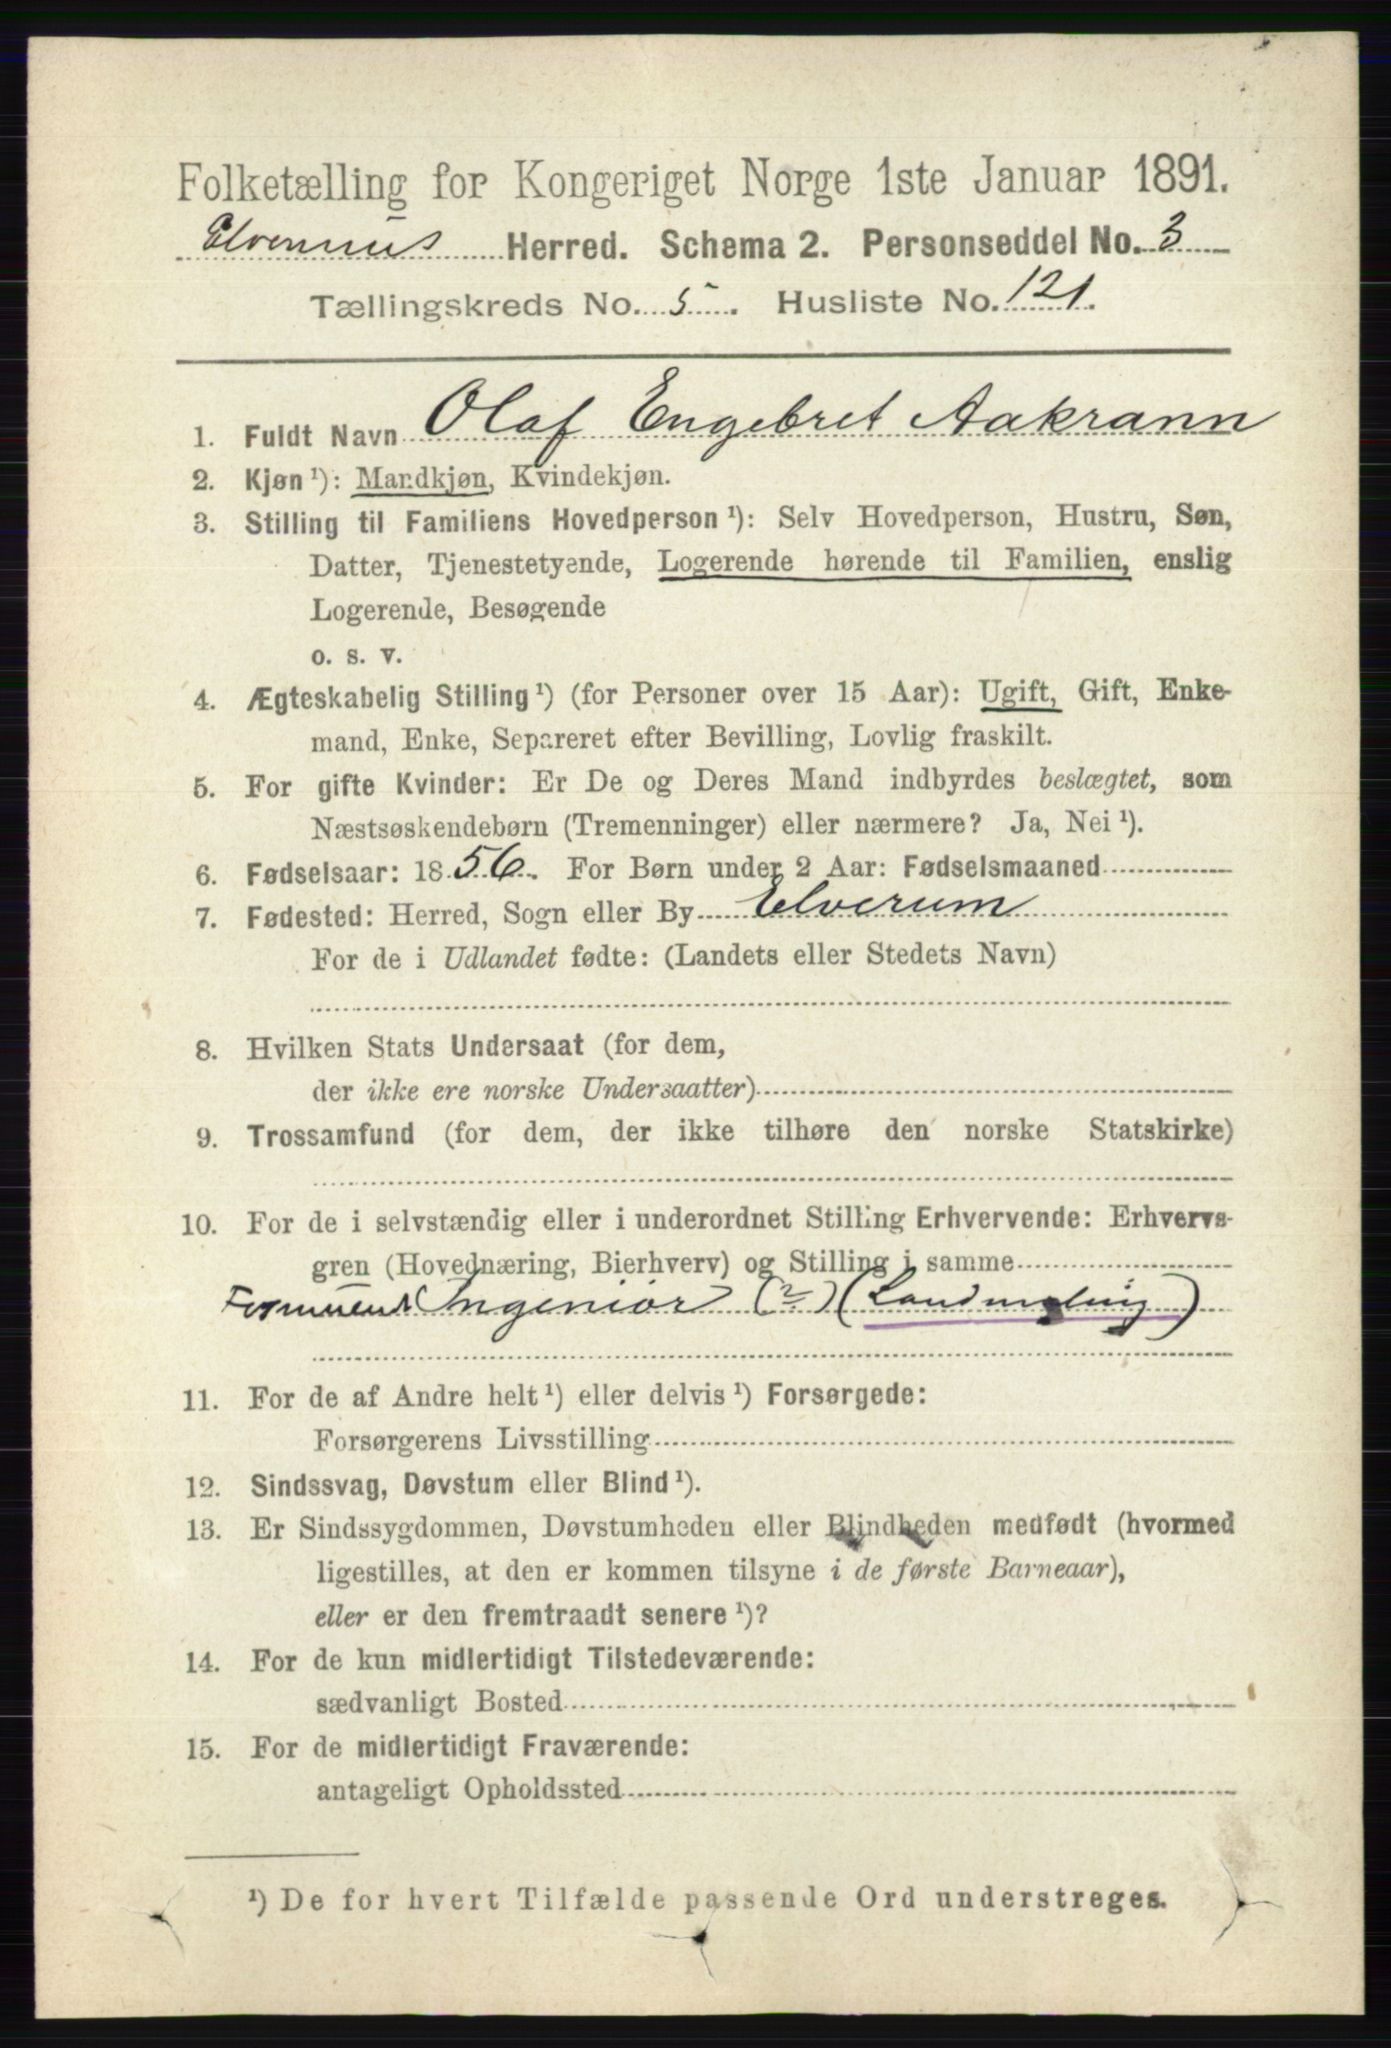 Folketælling for Kongeriget Norge 1ste Januar 1891.
Elverums Herred. Schema 2. Personseddel No. 3
Tællingskreds No. 5. Husliste No. 121.
1. Fuldt Navn Olaf Engebret Aakrann
2. Kjøn ¹): Mandkjøn, Kvindekjøn.
3. Stilling til Familiens Hovedperson ¹): Selv Hovedperson, Hustru, Søn,
Datter, Tjenestetyende, Logerende hørende til Familien, enslig
Logerende, Besøgende
o. s. v.
4. Ægteskabelig Stilling ¹) (for Personer over 15 Aar): Ugift, Gift, Enke-
mand, Enke, Separeret efter Bevilling, Lovlig fraskilt.
5. For gifte Kvinder: Er De og Deres Mand indbyrdes beslægtet, som
Næstsøskendebørn (Tremenninger) eller nærmere? Ja, Nei ¹).
6. Fødselsaar: 1856. For Børn under 2 Aar: Fødselsmaaned
7. Fødested: Herred, Sogn eller By Elverum
For de i Udlandet fødte: (Landets eller Stedets Navn)
8. Hvilken Stats Undersaat (for dem,
der ikke ere norske Undersaatter)
9. Trossamfund (for dem, der ikke tilhøre den norske Statskirke)
10. For de i selvstændig eller i underordnet Stilling Erhvervende: Erhvervs-
gren (Hovednæring, Bierhverv) og Stilling i samme
Ingeniør (2) (Landmåling)
11. For de af Andre helt ¹) eller delvis ¹) Forsørgede:
Forsørgerens Livsstilling
12. Sindssvag, Døvstum eller Blind ¹).
13. Er Sindssygdommen, Døvstumheden eller Blindheden medfødt (hvormed
ligestilles, at den er kommen tilsyne i de første Barneaar),
eller er den fremtraadt senere ¹)?
14. For de kun midlertidigt Tilstedeværende:
sædvanligt Bosted
15. For de midlertidigt Fraværende:
antageligt Opholdssted
¹) De for hvert Tilfælde passende Ord understreges.